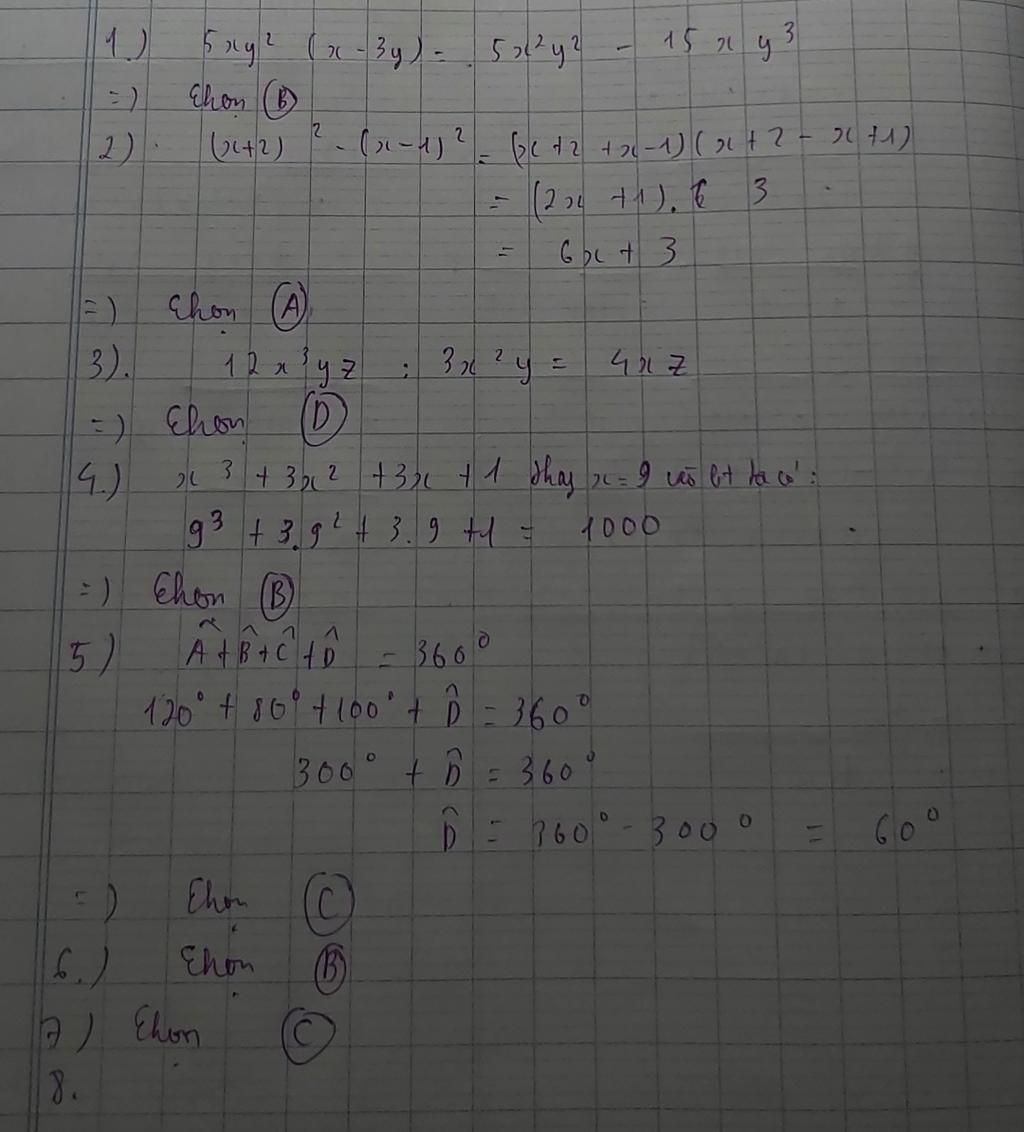 1.) 5xy² (x - 3y) = 5x²y² - 15xy³
=) Chọn (B)
2) (x+2)² - (x-1)² = (x+2+x-1)(x+2-x+1)
= (2x+1). 3
= 6x + 3
=) Chọn (A)
3). 12x³yz : 3x²y = 4xz
=) Chọn (D)
4.) x³ + 3x² + 3x + 1 thay x=9 vào bt ta có:
9³ + 3.9² + 3.9 +1 = 1000
=) Chọn (B)
5) Â + B̂ + Ĉ + D̂ = 360°
120° + 80° + 100° + D̂ = 360°
300° + D̂ = 360°
D̂ = 360° - 300° = 60°
=) Chọn (C)
6.) Chọn (B)
7) Chọn (C)
8.